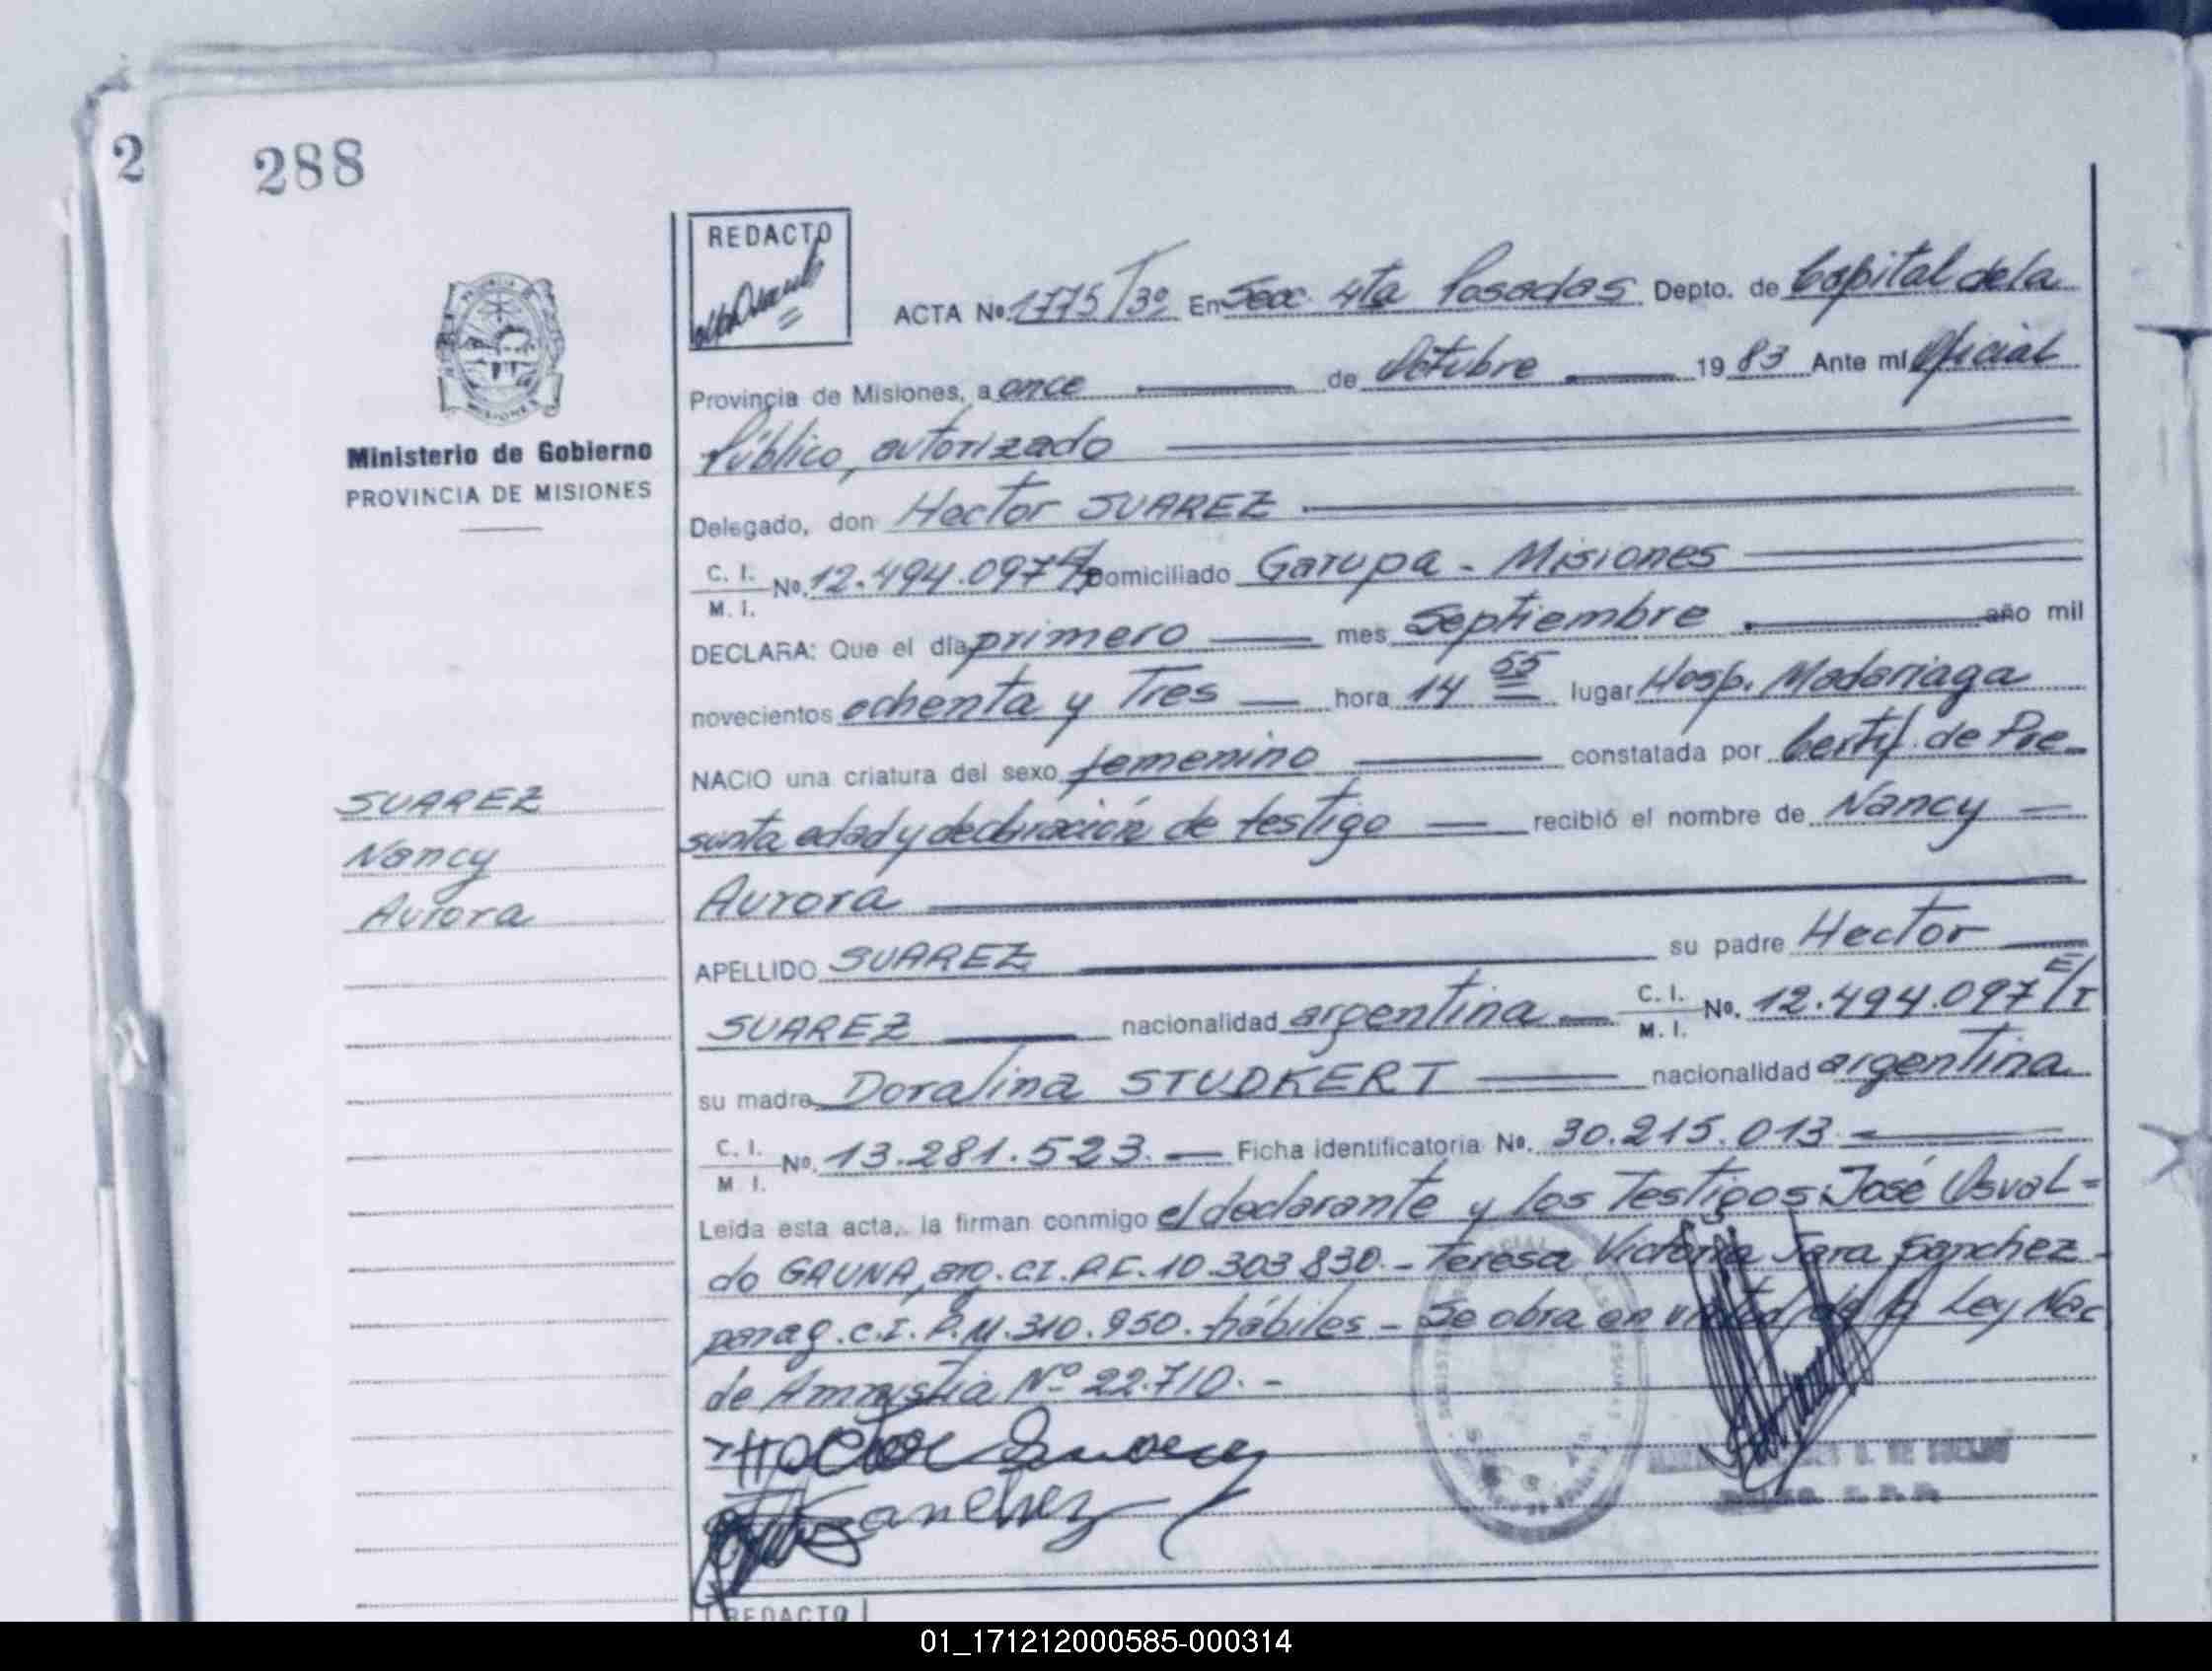 2
288
REDACTO
ACTA Nº 1775/3º En Secc. 4ta Posadas Depto. de Capital de la
Provincia de Misiones, a once de Octubre 1983 Ante mi Oficial
Público, autorizado
Ministerio de Gobierno
PROVINCIA DE MISIONES
Delegado, don Hector SUAREZ
C. I. M. I. No. 12.494.097 Domiciliado Garupa - Misiones
DECLARA: Que el día primero mes Septiembre año mil
novecientos ochenta y Tres hora 14 55 lugar Hosp. Madariaga
NACIO una criatura del sexo femenino constatada por Certif. de Pre-
SUAREZ
Nancy
Aurora
sunta edad y declaración de testigo recibió el nombre de Nancy
Aurora
APELLIDO SUAREZ su padre Hector
SUAREZ nacionalidad argentina C. I. M. I. No. 12.494.097 E/T
su madre Doralina STUDKERT nacionalidad argentina
C. I. M. I. No. 13.281.523.- Ficha identificatoria No. 30.215.013.-
Leida esta acta, la firman conmigo el declarante y los Testigos: José Osval=
do GAUNA, arg. C.I. P.F. 10.303.830.- Teresa Victoria Jara Sanchez-
parag. C.I. P.M. 310.950. hábiles - Se obra en virtud de la Ley Nac
de Amnistia Nº 22.710.-
Hector Suarez
Sanchez
REDACTO
01_171212000585-000314